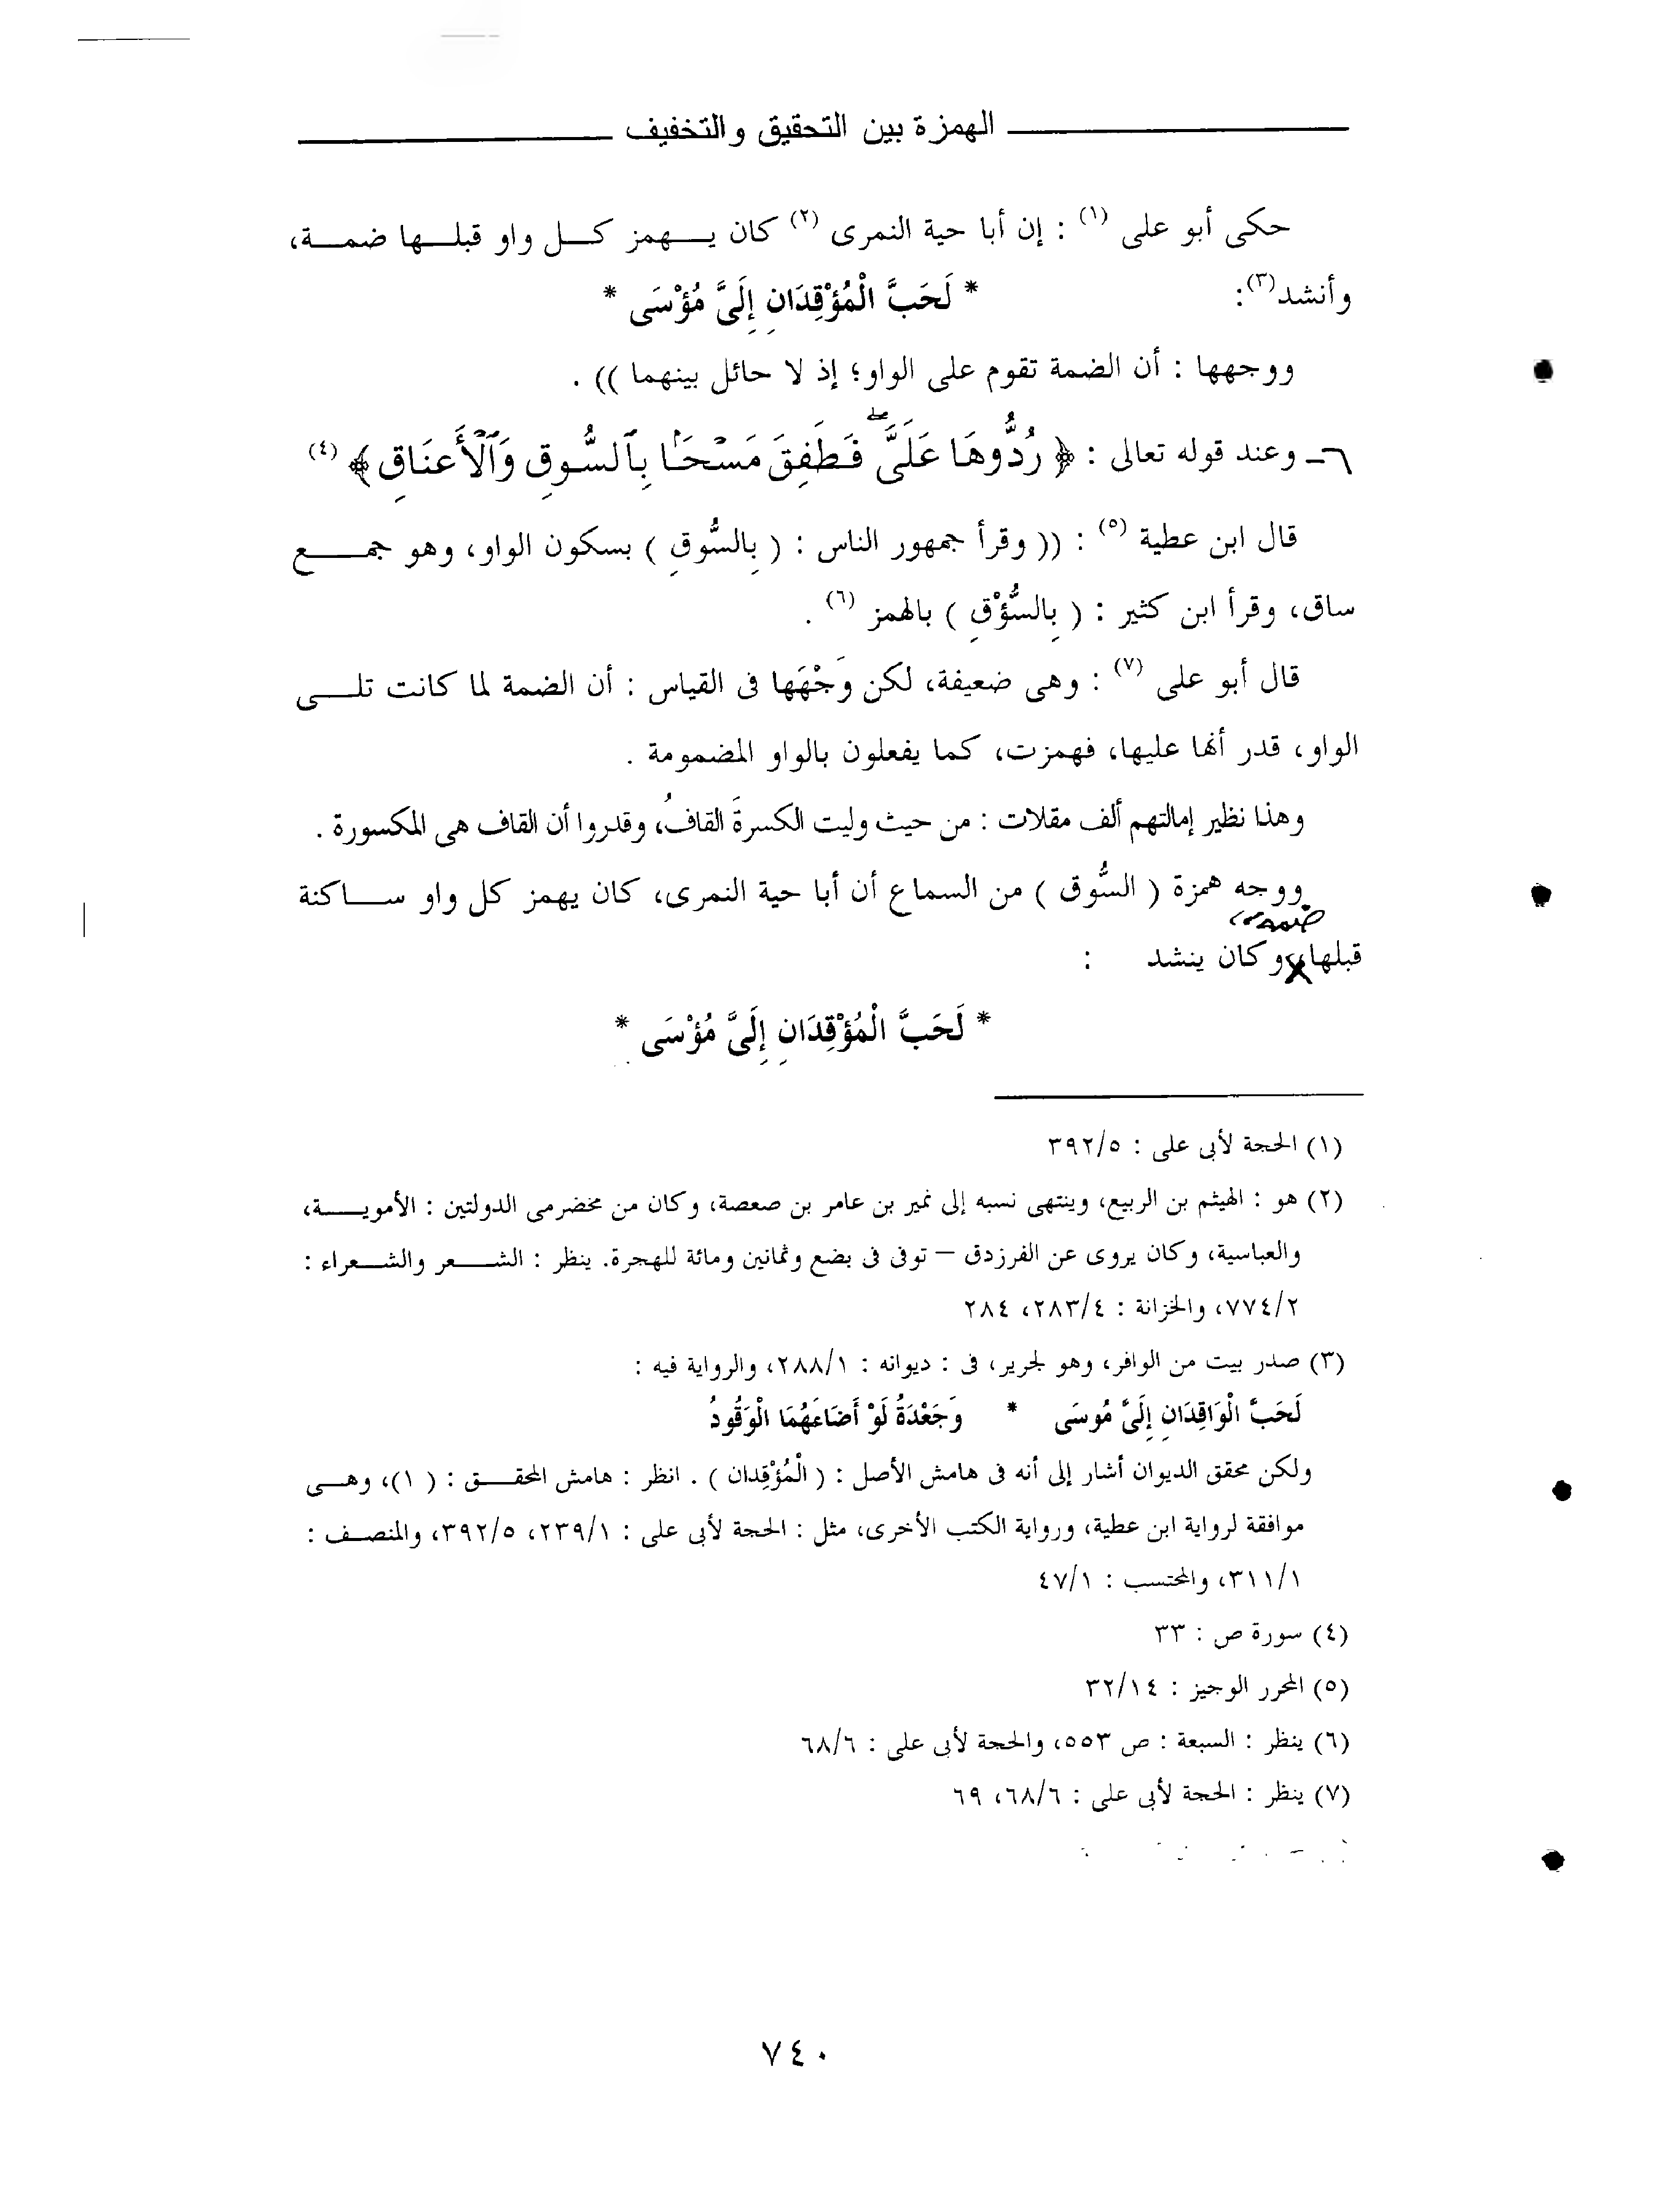 الهمزة بين التحقيق والتخفيف
حكى أبو على (١) : إن أبا حية النمرى (٢) كان يهمز كل واو قبلها ضمة،
وأنشد(٣):
* لَحَبَّ الْمُؤْقِدَانِ إِلَىَّ مُؤْسَى *
ووجهها : أن الضمة تقوم على الواو؛ إذ لا حائل بينهما )) .
٦- وعند قوله تعالى : ﴿ رُدُّوهَا عَلَىَّۖ فَطَفِقَ مَسْحَۢا بِٱلسُّوقِ وَٱلْأَعْنَاقِ ﴾ (٤)
قال ابن عطية (٥) : (( وقرأ جمهور الناس : ( بِالسُّوقِ ) بسكون الواو، وهو جمع
ساق، وقرأ ابن كثير : ( بِالسُّؤْقِ ) بالهمز (٦) .
قال أبو على (٧) : وهى ضعيفة، لكن وَجْهَها فى القياس : أن الضمة لما كانت تلى
الواو، قدر أنها عليها، فهمزت، كما يفعلون بالواو المضمومة .
وهذا نظير إمالتهم ألف مقلات : من حيث وليت الكسرةَ القافُ، وقدروا أن القاف هى المكسورة .
ووجه همزة ( السُّوق ) من السماع أن أبا حية النمرى، كان يهمز كل واو ساكنة
ضمة،
قبلها وكان ينشد :
* لَحَبَّ الْمُؤْقِدَانِ إِلَىَّ مُؤْسَى *
(١) الحجة لأبى على : ٣٩٢/٥
(٢) هو : الهيثم بن الربيع، وينتهى نسبه إلى نمير بن عامر بن صعصة، وكان من مخضرمى الدولتين : الأموية،
والعباسية، وكان يروى عن الفرزدق – توفى فى بضع وثمانين ومائة للهجرة. ينظر : الشعر والشعراء :
٧٧٤/٢، والخزانة : ٢٨٣/٤، ٢٨٤
(٣) صدر بيت من الوافر، وهو لجرير، فى : ديوانه : ٢٨٨/١، والرواية فيه :
لَحَبَّ الْوَاقِدَانِ إِلَىَّ مُوسَى * وَجَعْدَةُ لَوْ أَضَاءَهُمَا الْوَقُودُ
ولكن محقق الديوان أشار إلى أنه فى هامش الأصل : ( الْمُؤْقِدان ) . انظر : هامش المحقق : ( ١)، وهى
موافقة لرواية ابن عطية، ورواية الكتب الأخرى، مثل : الحجة لأبى على : ٢٣٩/١، ٣٩٢/٥، والمنصف :
٣١١/١، والمحتسب : ٤٧/١
(٤) سورة ص : ٣٣
(٥) المحرر الوجيز : ٣٢/١٤
(٦) ينظر : السبعة : ص ٥٥٣، والحجة لأبى على : ٦٨/٦
(٧) ينظر : الحجة لأبى على : ٦٨/٦، ٦٩
٧٤٠